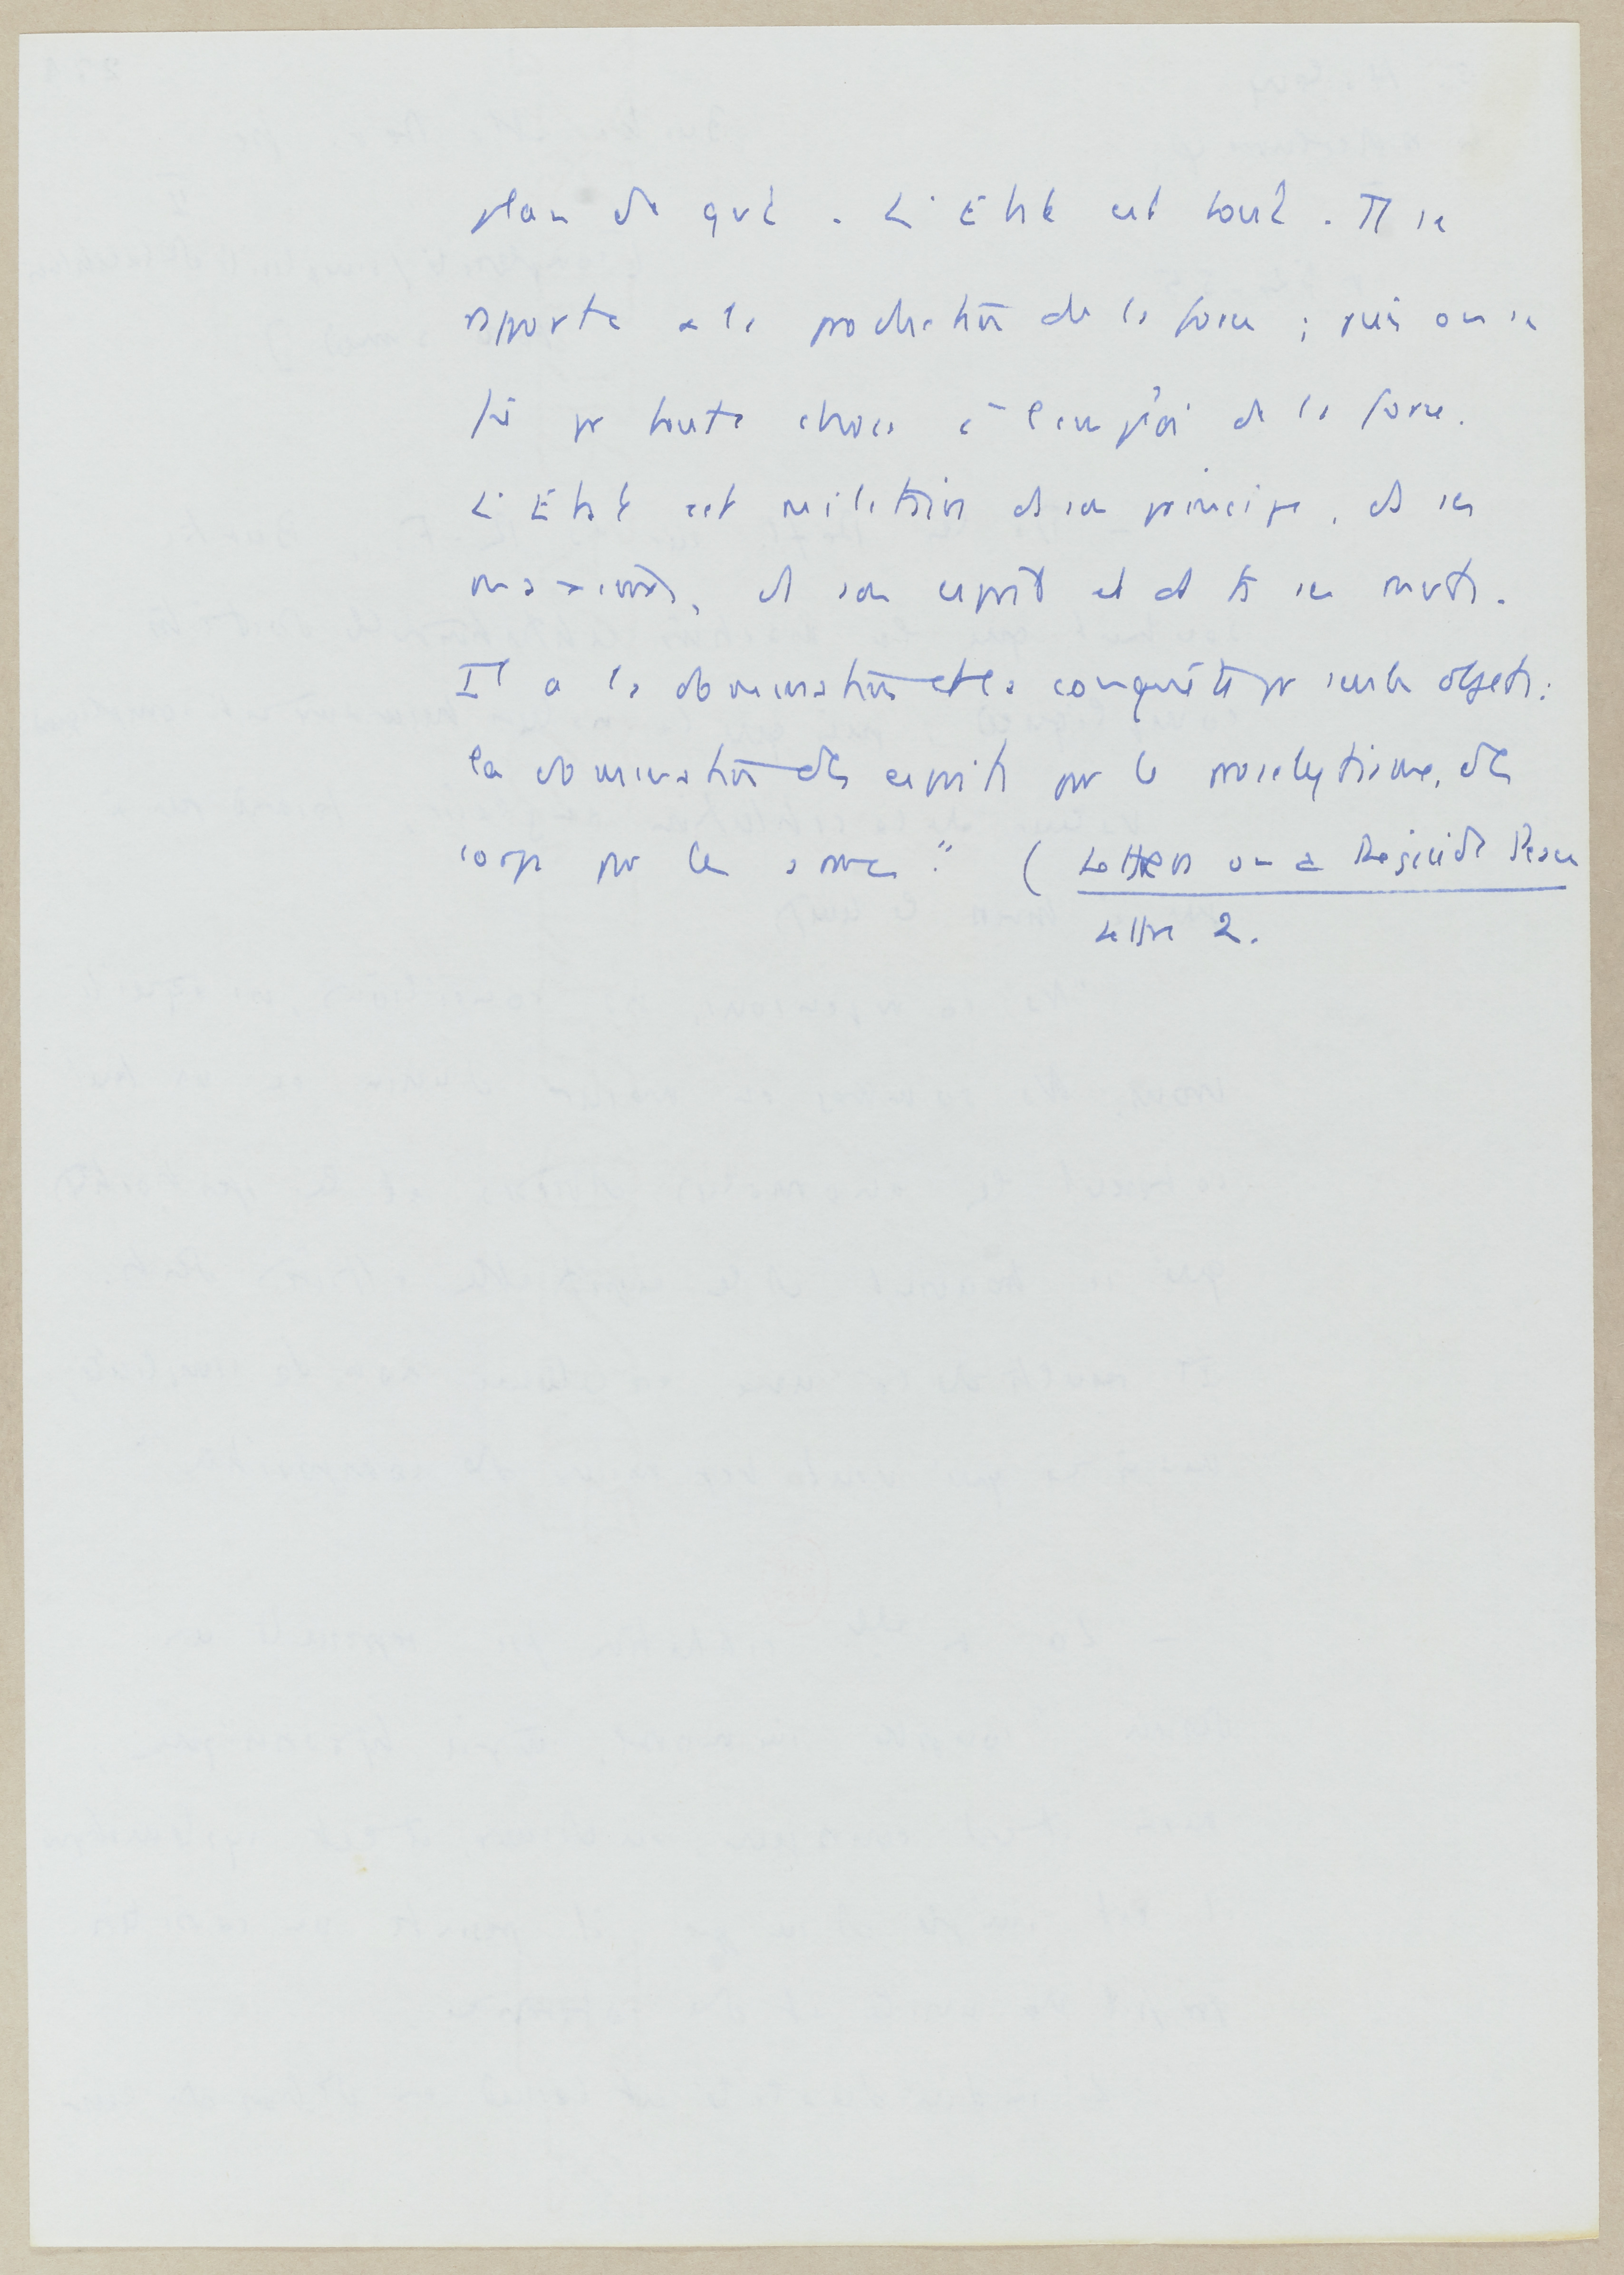 plan de gvt. L'Etat est tout. Tt se
rapporte à la production de la force ; puis on se
fie pr toute chose à l'emploi de la force.
L'Etat est militaire ds son principe, ds ses
maximes, ds son esprit et ds ts ses mvts.
Il a la domination et la conquête pr seuls objets :
la domination des esprits par le proselytisme, des
corps par les armes" ( Letters on a Regicide Peace
Lettre 2.